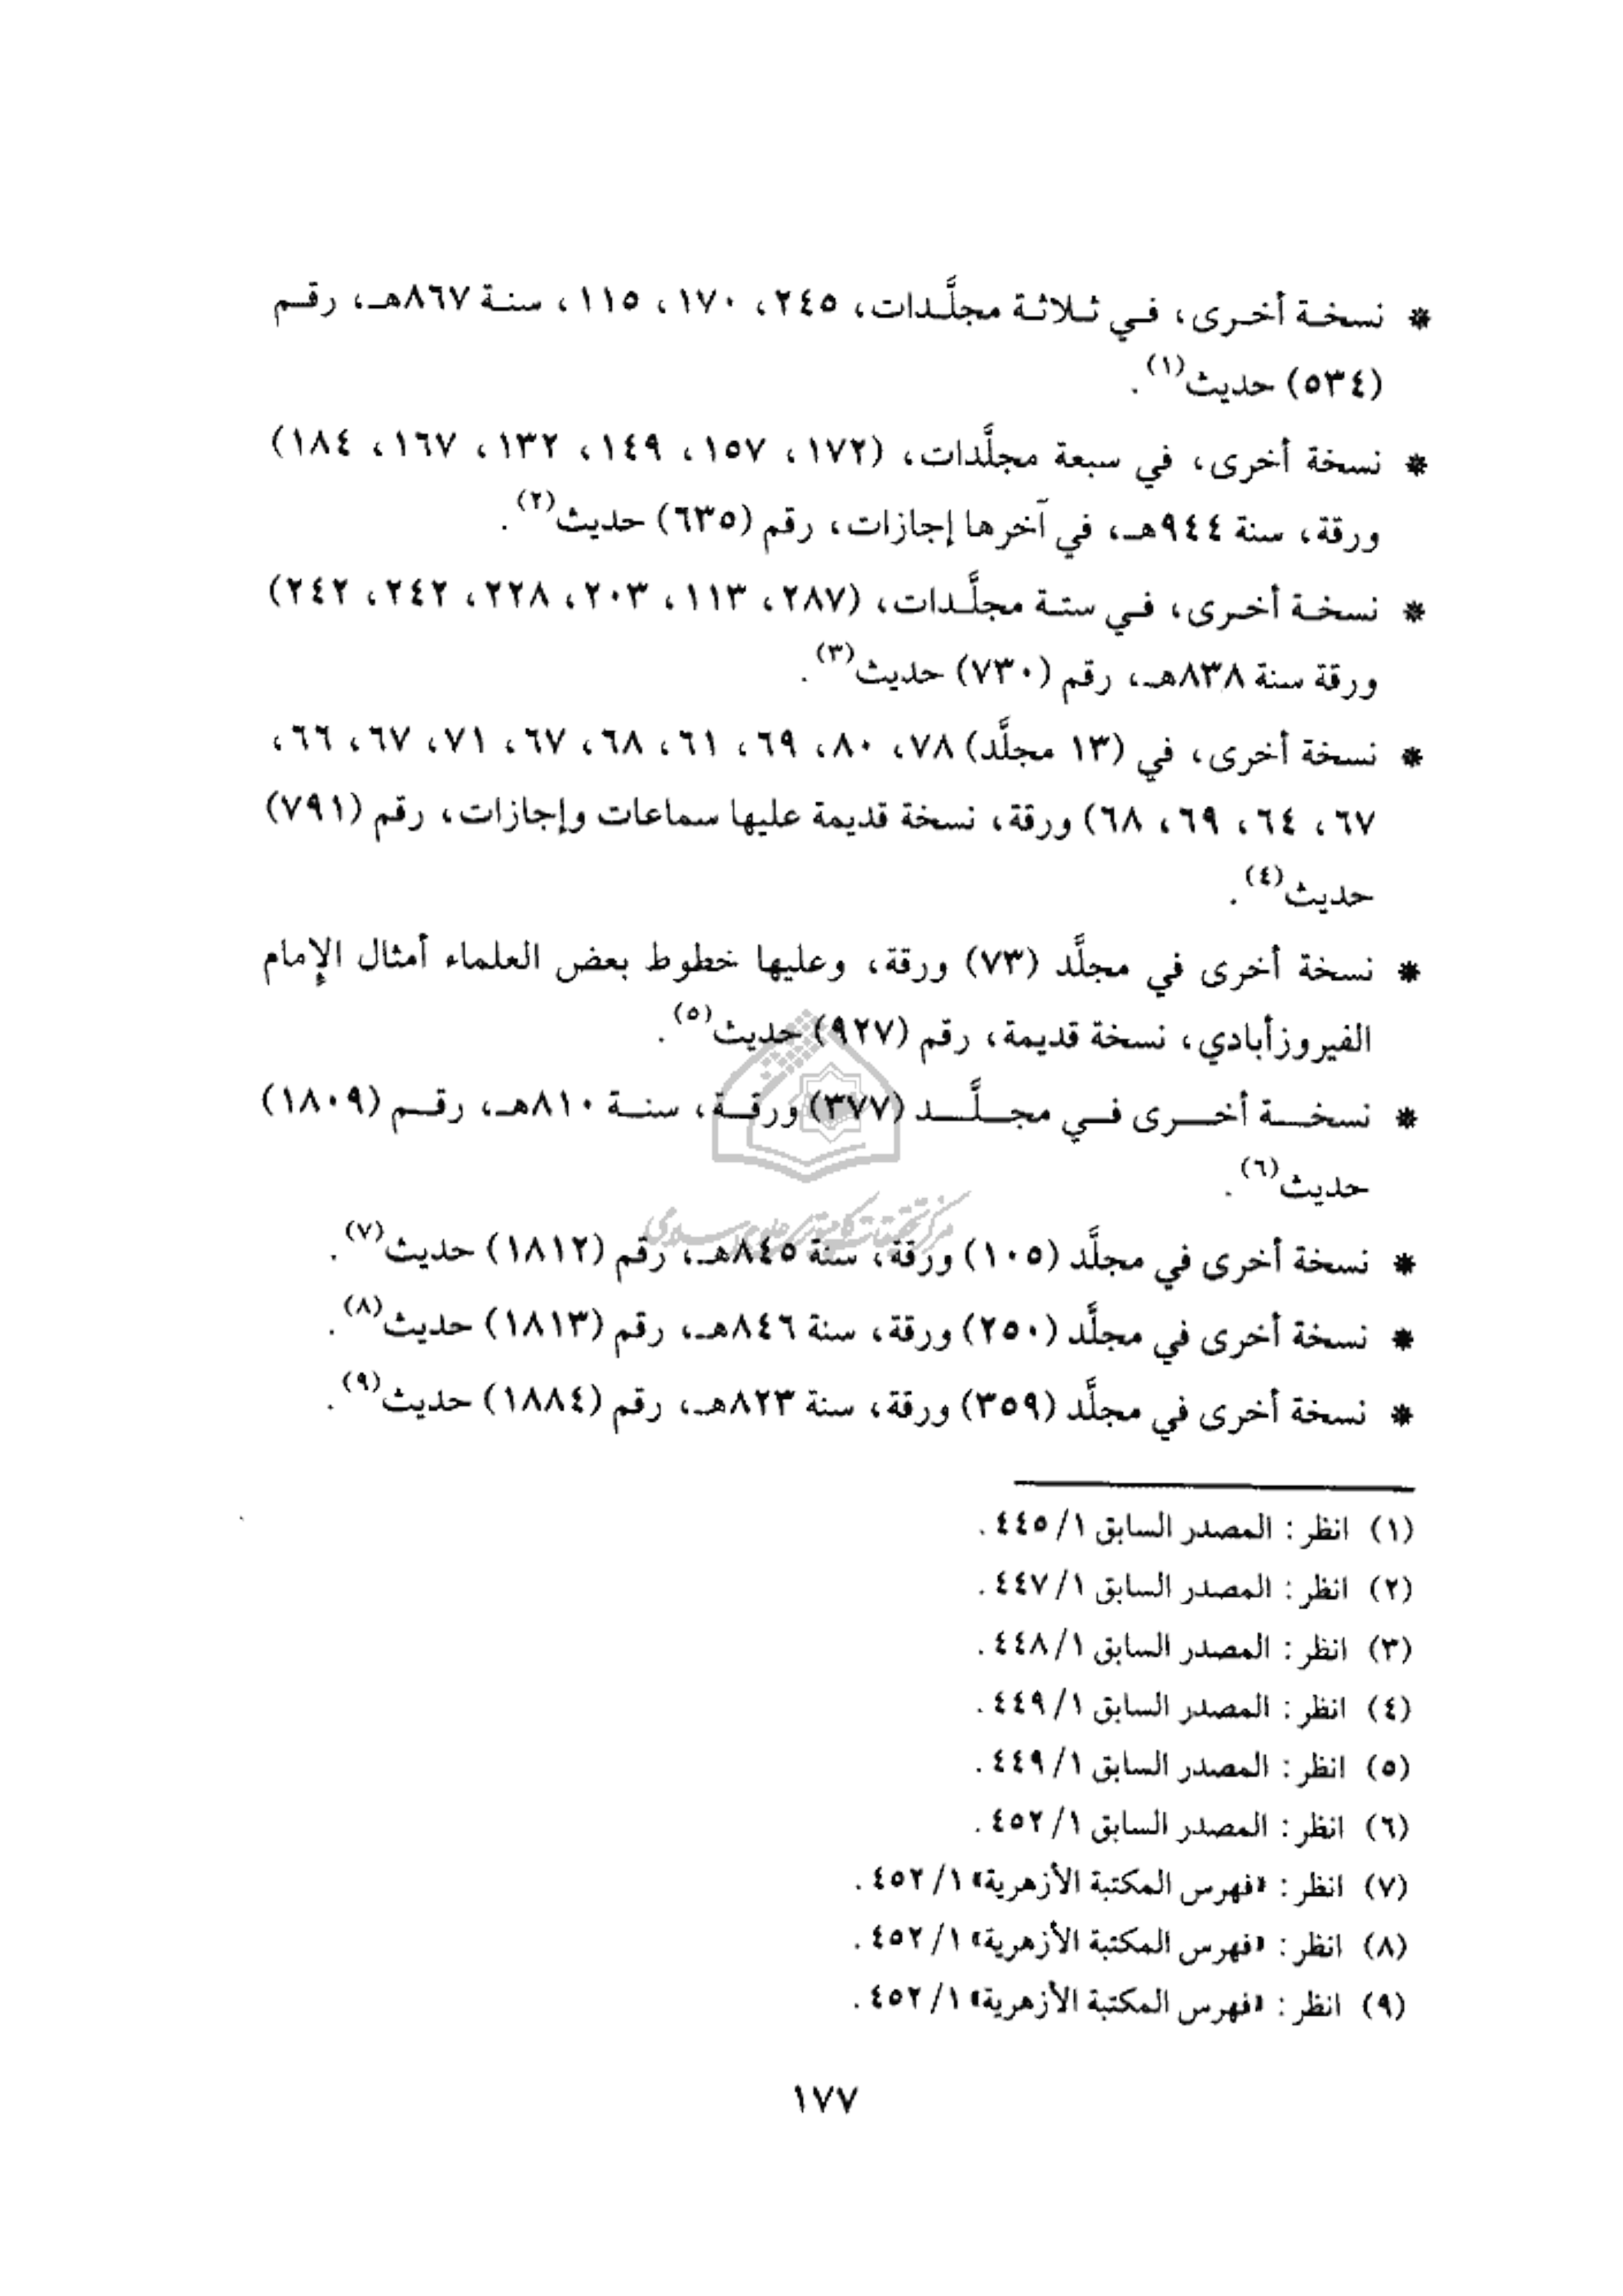 * نسخة أخرى، في ثلاثة مجلَّدات، ٢٤٥، ١٧٠، ١١٥، سنة ٨٦٧هـ، رقم
(٥٣٤) حديث(١).
* نسخة أخرى، في سبعة مجلَّدات، (١٧٢، ١٥٧، ١٤٩، ١٣٢، ١٦٧، ١٨٤)
ورقة، سنة ٩٤٤هـ، في آخرها إجازات، رقم (٦٣٥) حديث(٢).
* نسخة أخرى، في ستة مجلَّدات، (٢٨٧، ١١٣، ٢٠٣، ٢٢٨، ٢٤٢، ٢٤٢)
ورقة سنة ٨٣٨هـ، رقم (٧٣٠) حديث(٣).
* نسخة أخرى، في (١٣ مجلَّد) ٧٨، ٨٠، ٦٩، ٦١، ٦٨، ٦٧، ٧١، ٦٧، ٦٦،
٦٧، ٦٤، ٦٩، ٦٨) ورقة، نسخة قديمة عليها سماعات وإجازات، رقم (٧٩١)
حديث(٤).
* نسخة أخرى في مجلَّد (٧٣) ورقة، وعليها خطوط بعض العلماء أمثال الإمام
الفيروزأبادي، نسخة قديمة، رقم (٩٢٧) حديث(٥).
* نسخة أخرى في مجلَّد (٣٧٧) ورقة، سنة ٨١٠هـ، رقم (١٨٠٩)
حديث(٦).
مركز تحقيقات كامپيوتري علوم اسلامي
* نسخة أخرى في مجلَّد (١٠٥) ورقة، سنة ٨٤٥هـ، رقم (١٨١٢) حديث(٧).
* نسخة أخرى في مجلَّد (٢٥٠) ورقة، سنة ٨٤٦هـ، رقم (١٨١٣) حديث(٨).
* نسخة أخرى في مجلَّد (٣٥٩) ورقة، سنة ٨٢٣هـ، رقم (١٨٨٤) حديث(٩).
(١) انظر: المصدر السابق ١/ ٤٤٥.
(٢) انظر: المصدر السابق ١/ ٤٤٧.
(٣) انظر: المصدر السابق ١/ ٤٤٨.
(٤) انظر: المصدر السابق ١/ ٤٤٩.
(٥) انظر: المصدر السابق ١/ ٤٤٩.
(٦) انظر: المصدر السابق ١/ ٤٥٢.
(٧) انظر: «فهرس المكتبة الأزهرية» ١/ ٤٥٢.
(٨) انظر: «فهرس المكتبة الأزهرية» ١/ ٤٥٢.
(٩) انظر: «فهرس المكتبة الأزهرية» ١/ ٤٥٢.
١٧٧